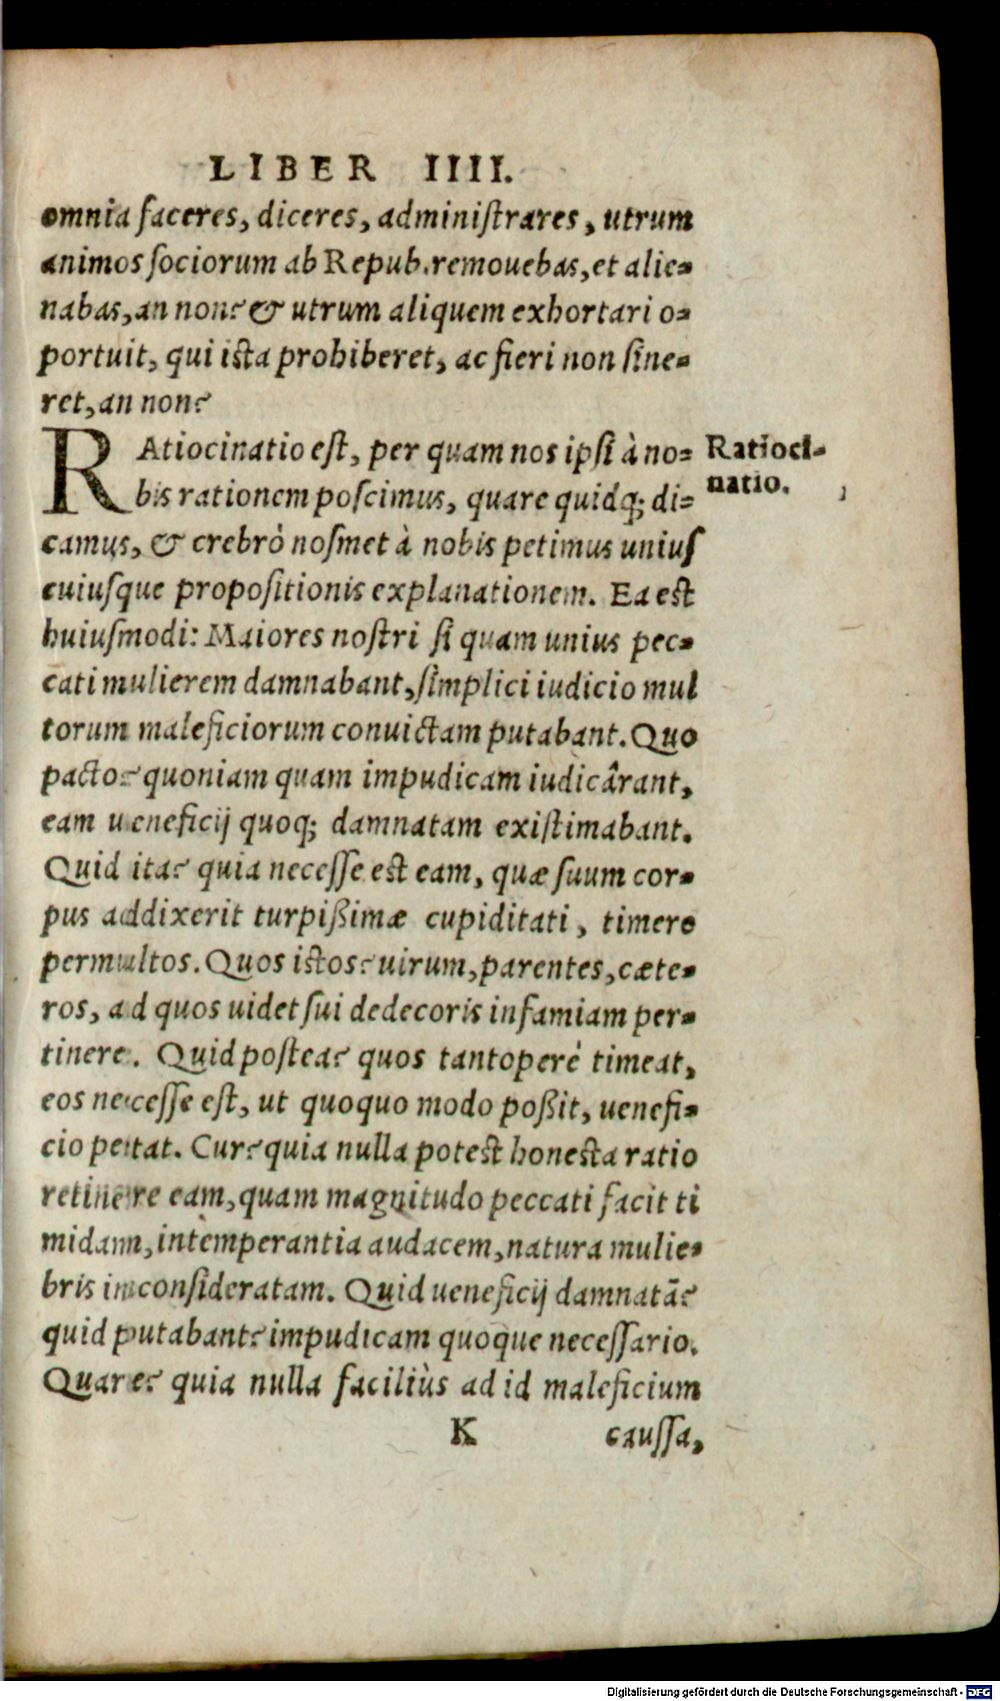 LIBER IIII.
omnia faceres, diceres, administrares, utrum
animos sociorum ab Repub. remouebas, et alie-
nabas, an non? & utrum aliquem exhortari o-
portuit, qui ista prohiberet, ac fieri non sine-
ret, an non?
RAtiocinatio est, per quam nos ipsi à no-
bis rationem poscimus, quare quidq; di-
camus, & crebrò nosmet à nobis petimus unius
cuiusque propositionis explanationem. Ea est
huiusmodi: Maiores nostri si quam unius pec-
cati mulierem damnabant, simplici iudicio mul
torum maleficiorum conuictam putabant. Quo
pacto? quoniam quam impudicam iudicârant,
eam ueneficij quoq; damnatam existimabant.
Quid ita? quia necesse est eam, quæ suum cor-
pus addixerit turpißimæ cupiditati, timere
permultos. Quos istos? uirum, parentes, cæte-
ros, ad quos uidet sui dedecoris infamiam per-
tinere. Quid postea? quos tantoperè timeat,
eos necesse est, ut quoquo modo poßit, uenefi-
cio petat. Cur? quia nulla potest honesta ratio
retinere eam, quam magnitudo peccati facit ti
midam, intemperantia audacem, natura mulie-
bris inconsideratam. Quid ueneficij damnatā?
quid putabant? impudicam quoque necessario.
Quare? quia nulla faciliùs ad id maleficium
K caussa,
Ratioci-
natio.
Digitalisierung gefördert durch die Deutsche Forschungsgemeinschaft - DFG